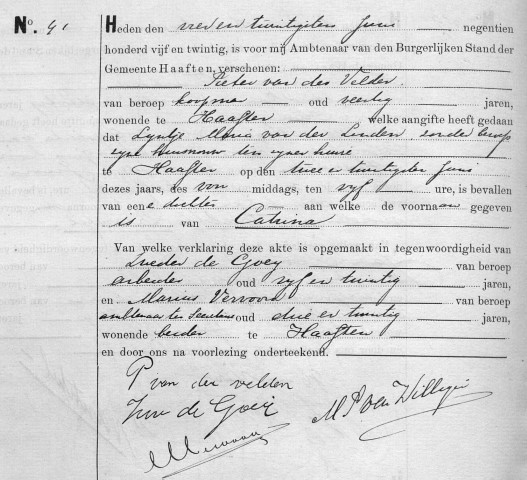 No. 41
Heden den vier en twintigsten Juni negentien
honderd vijf en twintig, is voor mij Ambtenaar van den Burgerlijken Stand der
Gemeente Haaften, verschenen:
Pieter van der Velden
van beroep koopman oud veertig jaren,
wonende te Haaften welke aangifte heeft gedaan
dat Lijntje Maria van der Linden zonder beroep
zijne huisvrouw ten zijner huize
te Haaften op den twee en twintigsten Juni
dezes jaars, des voor middags, ten vijf ure, is bevallen
van eene dochter aan welke de voornaam gegeven
is van Catrina
Van welke verklaring deze akte is opgemaakt in tegenwoordigheid van
de Goey van beroep
arbeider oud vijf en twintig jaren,
en Marinus Vervoorn van beroep
ambtenaar ter Secretarie oud drie en twintig jaren,
wonende beiden te Haaften
en door ons na voorlezing onderteekend.
P van der velden
de Goeij
M P van Willigen